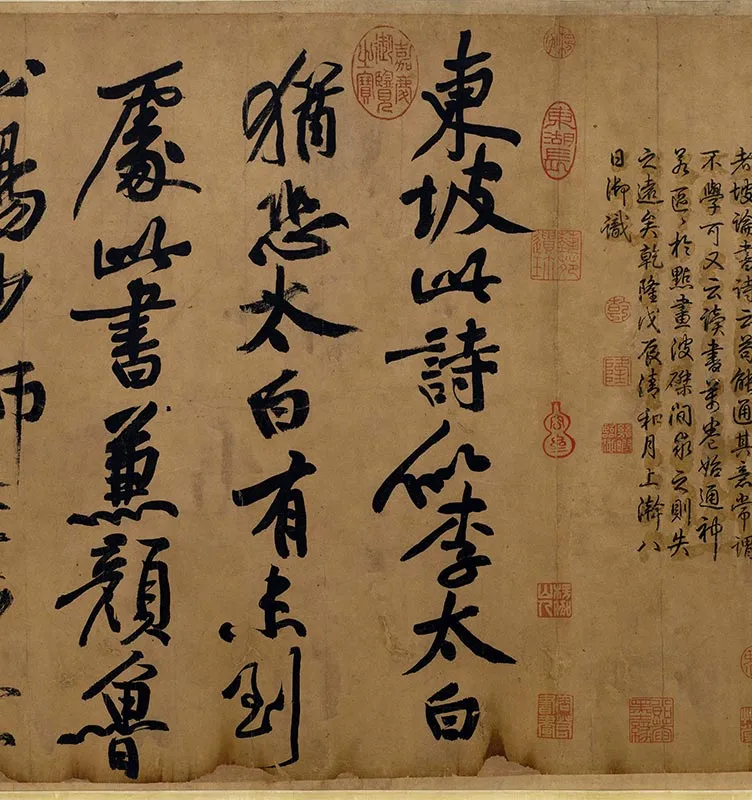 者坡論書詩云苟能通其意常謂
不學可又云讀書萬卷始通神
若區〻於點畫波磔間求之則失
之遠矣乾隆戊辰清和月上澣八
日御識
東湖長
乾
隆
嘉慶御覽之寶
東坡此詩似李太白
猶恐太白有未到
處此書兼顏魯
公楊少師